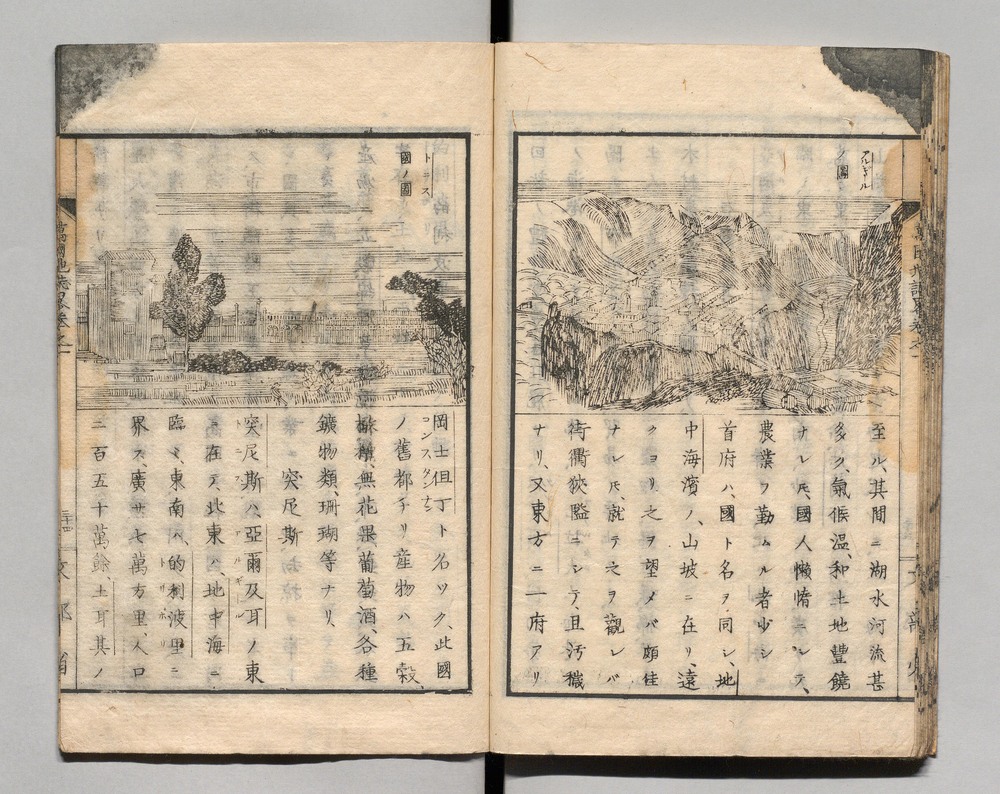 アルギル
ノ圖
至ル、其間ニ湖水河流甚
多ク、氣候温和土地豐饒
ナレ𪜈、國人懶惰ニシテ、
農業ヲ勤ムル者少シ
首府ハ、國ト名ヲ同シ、地
中海濱ノ、山坡ニ在リ、遠
クヨリ之ヲ望メバ頗佳
ナレ𪜈、就テ之ヲ觀レバ
街衢狹隘ニシテ、且汚穢
ナリ、又東方ニ一府アリ
トニス
國ノ圖
岡士但丁ト名ツク、此國
コンスタンチン
ノ舊都ナリ産物ハ五穀、
橄欖、無花果葡萄酒、各種
鑛物類、珊瑚等ナリ、
突尼斯
突尼斯ハ、亞爾及耳ノ東
トニス アルギル
ニ在テ、北東ハ地中海ニ
臨ミ、東南ハ、的利波里ニ
トリポリ
界ス、廣サ七萬方里、人口
二百五十萬餘、土耳其ノ
文部省